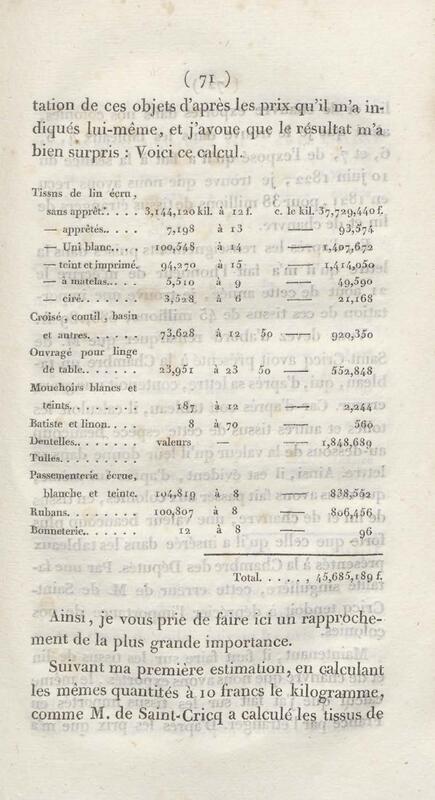 ( 71 )
tation de ces objets d'après les prix qu'il m'a in-
diqués lui-même, et j'avoue que le résultat m'a
bien surpris : Voici ce calcul.
Tissns de lin écru,
sans apprêt. . . . . 3,144,120 kil. à 12 f. c. le kil. 37,729,440 f.
— apprêtés. . . . . 7,198 à 13 — 93,574
— Uni blanc. . . . 100,548 à 14 — 1,407,672
— teint et imprimé. 94,270 à 15 — 1,414,050
— à matelas. . . . 5,510 à 9 — 49,590
— ciré. . . . . . . 3,528 à 6 — 21,168
Croisé, coutil, basin
et autres. . . . . . 73,628 à 12 50 — 920,350
Ouvragé pour linge
de table. . . . . . . 23,951 à 23 50 — 552,848
Mouchoirs blancs et
teints. . . . . . . . 187 à 12 — 2,244
Batiste et linon. . . . 8 à 70 — 560
Dentelles. . . . . . . valeurs — — 1,848,689
Tulles. . . . . . . . .
Passementerie écrue,
blanche et teinte. 104,819 à 8 — 838,552
Rubans. . . . . . . . 100,807 à 8 — 806,456
Bonneterie. . . . . . 12 à 8 — 96
Total. . . . . , 45,685,189 f.
Ainsi, je vous prie de faire ici un rapproche-
ment de la plus grande importance.
Suivant ma première estimation, en calculant
les mêmes quantités à 10 francs le kilogramme,
comme M. de Saint-Cricq a calculé les tissus de